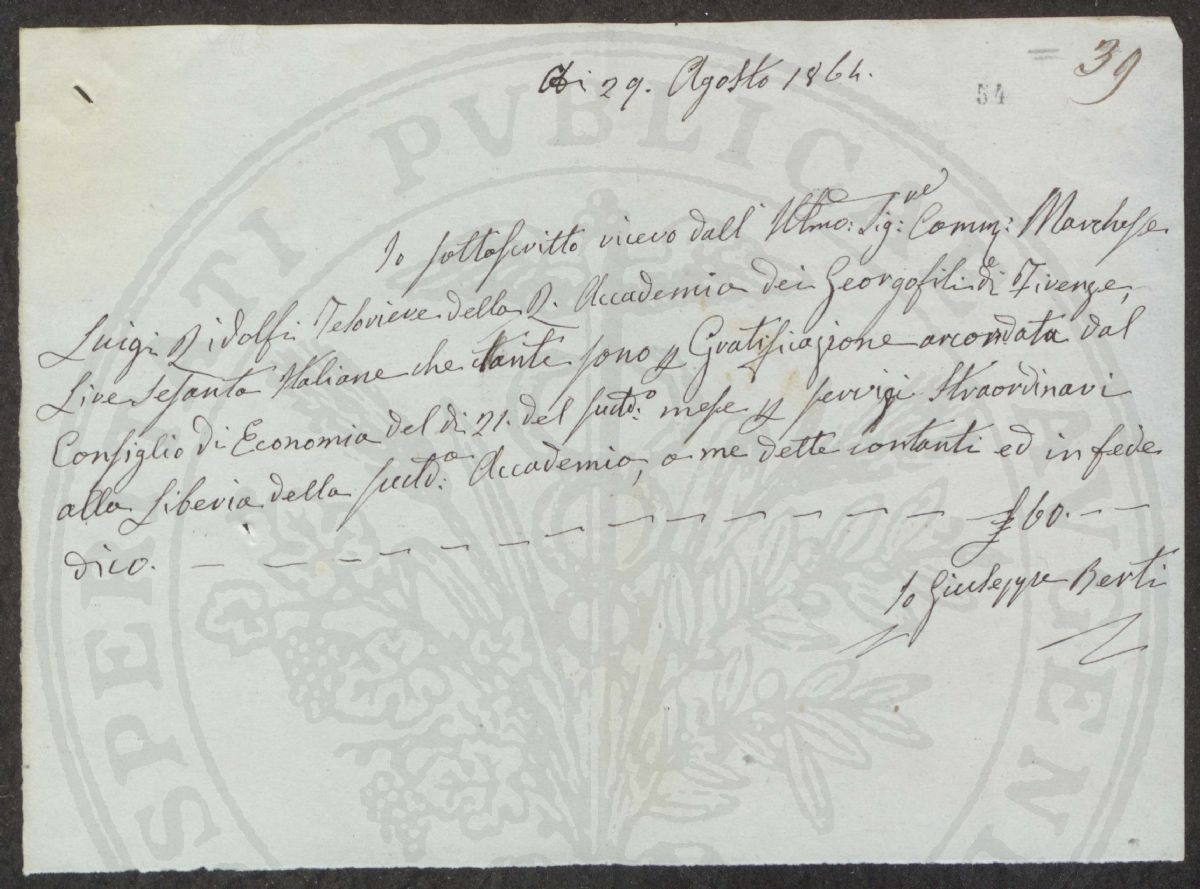 Adi 29. Agosto 1864.
39
54
Io sottoscritto ricevo dall' Illmo: Sig:re Comm: Marchese
Luigi Ridolfi Tesoriere della R. Accademia dei Georgofili di Firenze,
Lire Sesanta Italiane che tante sono p Gratificazione accordata dal
Consiglio di Economia del dì 21. del sudd:o mese p servigi straordinari
alla Libreria della sudd:a Accademia, a me dette contanti ed in fede
dico. — — — — — — — — — — — — £ 60. — —
Io Giuseppe Berti
SPERITATI PVBLICAE AVGEN